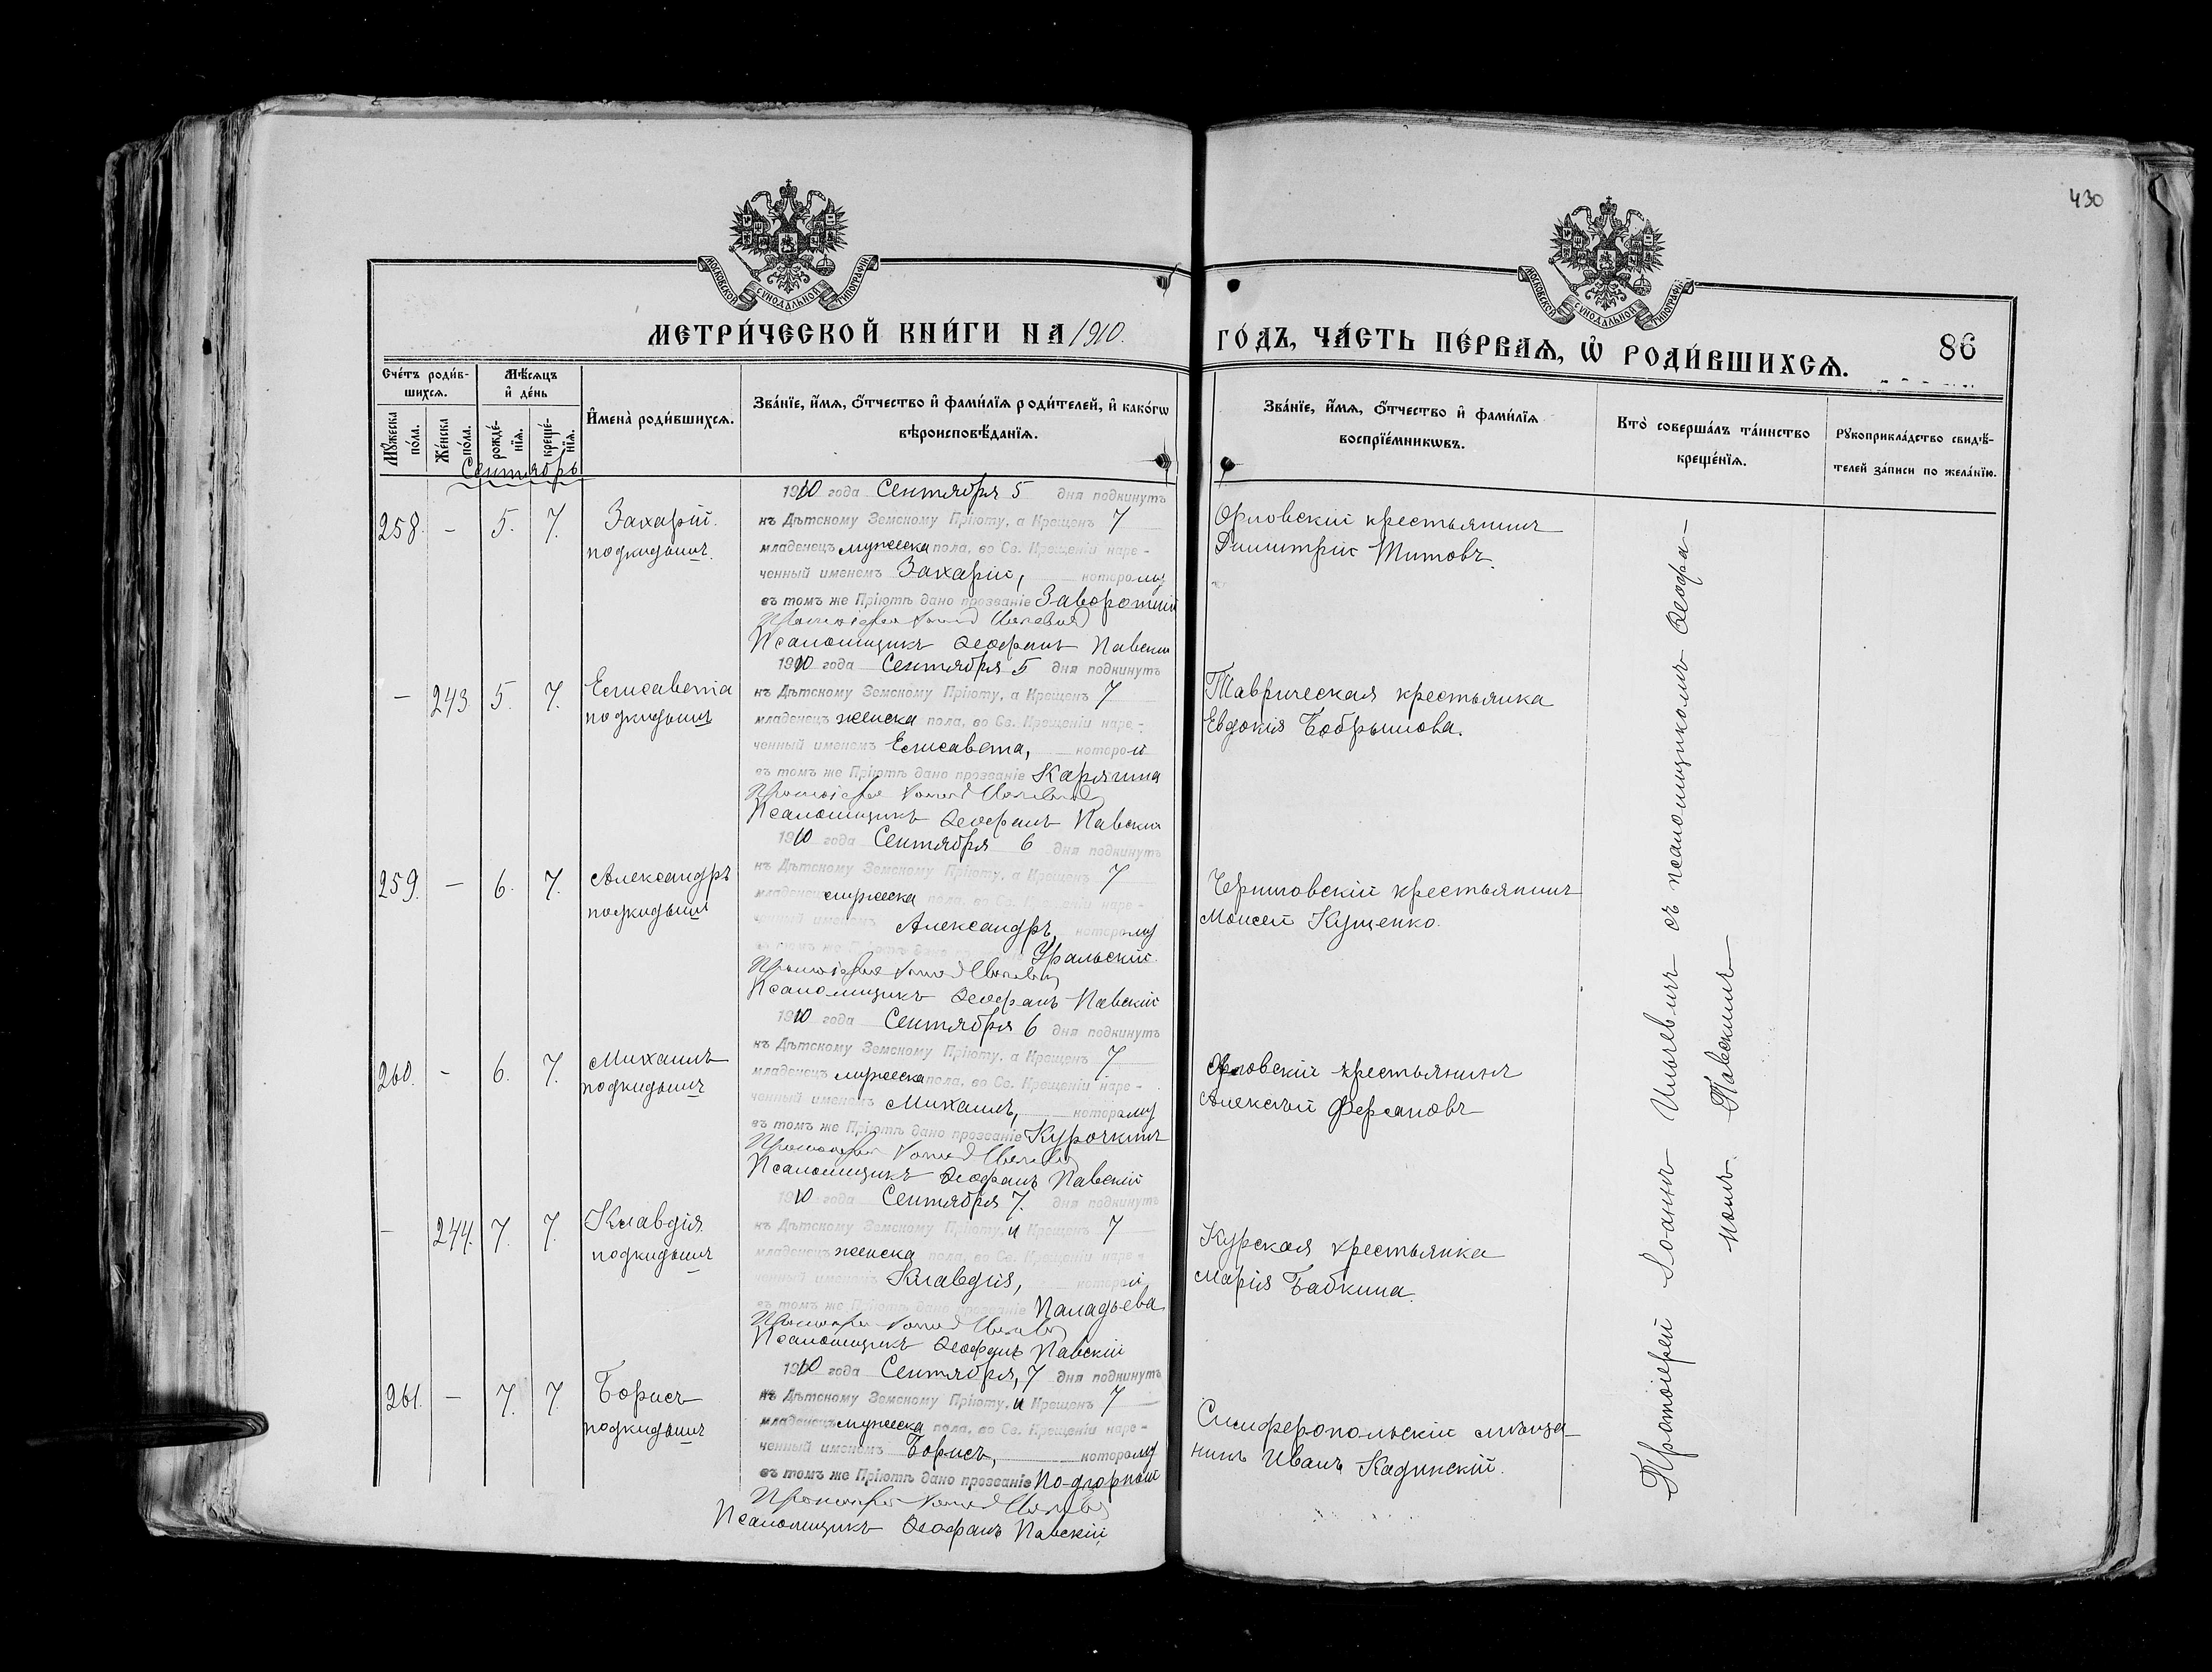 430
МОСКОВСКОЙ СѴНОДАЛЬНОЙ ТИПОГРАФІИ
МОСКОВСКОЙ СѴНОДАЛЬНОЙ ТИПОГРАФІИ
МЕТРИ́ЧЕСКОЙ КНИ́ГИ НА 1910. ГО́ДЪ, ЧА́СТЬ ПЕ́РВАЯ, Ѡ РОДИ́ВШИХСЯ.
86
Сче́тъ роди́в-
шихся.
Мѣ́сяцъ
и де́нь
Мꙋ́жеска
по́ла.
Же́нска
по́ла.
рожде́-
нїя.
креще́-
нїя.
Имена̀ роди́вшихся.
Зва́нїе, и́мя, о́тчество и фами́лїя роди́телей, и како́гѡ
вѣроисповѣ́данїя.
Зва́нїе, и́мя, о́тчество и фами́лїя
воспрїе́мникѡвъ.
Кто̀ соверша́лъ та́инство
креще́нїя.
Рꙋкоприкла́дство свидѣ́-
телей за́писи по жела́нїю.
Сентябрь
258. - 5. 7.
Захарій.
подкидышъ.
1910 года Сентября 5 дня подкинутъ
къ Дѣтскому Земскому Пріюту, а Крещенъ 7
младенецъ мужеска пола, во Св. Крещеніи наре-
ченный именемъ Захарій, которому
въ томъ же Пріютѣ дано прозваніе Заворотній
Псаломщикъ Ѳеофанъ Павскій
Орловскій крестьянинъ
Димитрій Титовъ.
- 243 5. 7.
Елисавета
подкидышъ
1910 года Сентября 5 дня подкинутъ
къ Дѣтскому Земскому Пріюту, а Крещенъ 7
младенецъ женска пола, во Св. Крещеніи наре-
ченный именемъ Елисавета, которой
въ томъ же Пріютѣ дано прозваніе Карягина
Псаломщикъ Ѳеофанъ Павскій
Таврическая крестьянка
Евдокія Бобрышова.
259. - 6. 7.
Александръ
подкидышъ
1910 года Сентября 6 дня подкинутъ
къ Дѣтскому Земскому Пріюту, а Крещенъ 7
младенецъ мужеска пола, во Св. Крещеніи наре-
ченный именемъ Александръ, которому
въ томъ же Пріютѣ дано Уральскій.
Псаломщикъ Ѳеофанъ Павскій
Черниговскій крестьянинъ
Моисей Кущенко.
260. - 6. 7.
Михаилъ
подкидышъ
1910 года Сентября 6 дня подкинутъ
къ Дѣтскому Земскому Пріюту, а Крещенъ 7
младенецъ мужеска пола, во Св. Крещеніи наре-
ченный именемъ Михаилъ, которому
въ томъ же Пріютѣ дано прозваніе Курочкинъ
Псаломщикъ Ѳеофанъ Павскій
Орловскій крестьянинъ
Алексѣй Ферсановъ
- 244. 7. 7.
Клавдія
подкидышъ
1910 года Сентября 7. дня подкинутъ
къ Дѣтскому Земскому Пріюту, и Крещенъ 7
младенецъ женска пола, во Св. Крещеніи наре-
ченный именемъ Клавдія, которой
въ томъ же Пріютѣ дано прозваніе Паладьева
Псаломщикъ Ѳеофанъ Павскій
Курская крестьянка
Марія Бабкина.
261. - 7. 7.
Борисъ
подкидышъ
1910 года Сентября, 7 дня подкинутъ
къ Дѣтскому Земскому Пріюту, и Крещенъ 7
младенецъ мужеска пола, во Св. Крещеніи наре-
ченный именемъ Борисъ, которому
въ томъ же Пріютѣ дано прозваніе По-дгорный
Псаломщикъ Ѳеофанъ Павскій,
Симферопольскій мѣща-
нинъ Иванъ Кадинскій.
Протоіерей Іоаннъ Ильчевичъ съ псаломщикомъ Ѳеофа-
номъ Павскимъ